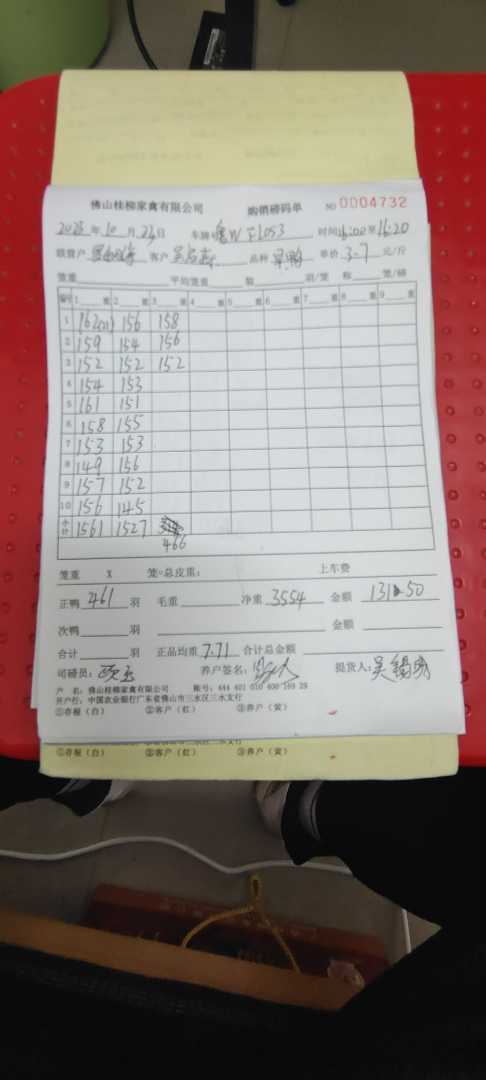 佛山桂柳家禽有限公司 购销磅码单 NO 0004732
2023年10月23日 车牌 WF1053 时间16:00至16:20
联营户 客户 吴 品种 单价 3.7 元/斤
笼重 平均笼重 装 羽/笼 称 笼/磅
编号 1 重 2 重 3 重 4 重 5 重 6 重 7 重 8 重 9 重
1 162 156 158
2 159 154 156
3 152 152 152
4 154 153
5 161 151
6 158 155
7 153 153
8 149 156
9 157 152
10 156 145
小计 1561 1527
466
笼重 X 笼=总皮重: 上车费
正鸭 461 羽 毛重 净重 3554 金额 13150
次鸭 羽 金额
合计 羽 正品均重 7.71 合计总金额
司磅员: 养户签名: 提货人: 吴锡
户 名: 佛山桂柳家禽有限公司 账号:
开户行: 中国农业银行广东省佛山市三水区三水支行
①存根(白) ②客户(红) ③养户(黄)
①存根(白) ②客户(红) ③养户(黄)